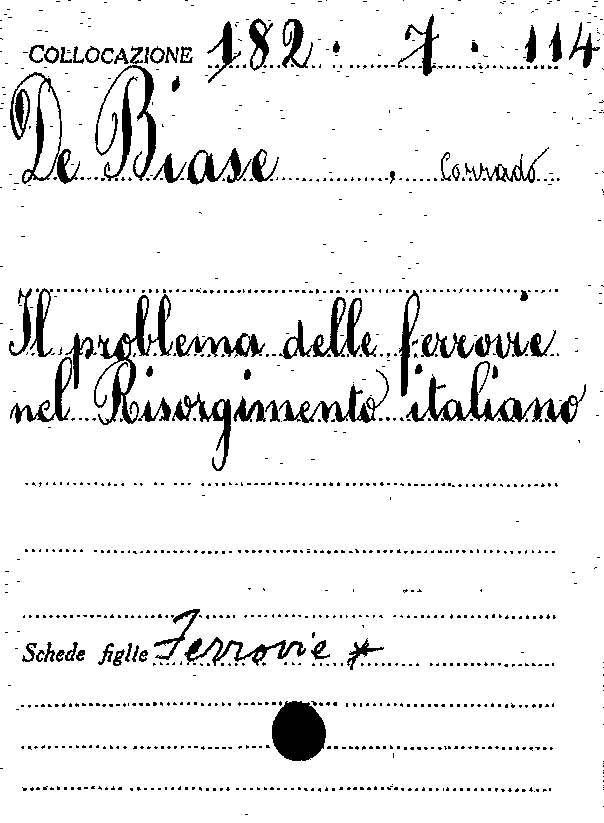 COLLOCAZIONE 182 . 7 . 114
De Biase , Corrado
Il problema delle ferrovie
nel Risorgimento italiano
Schede figlie Ferrovie *